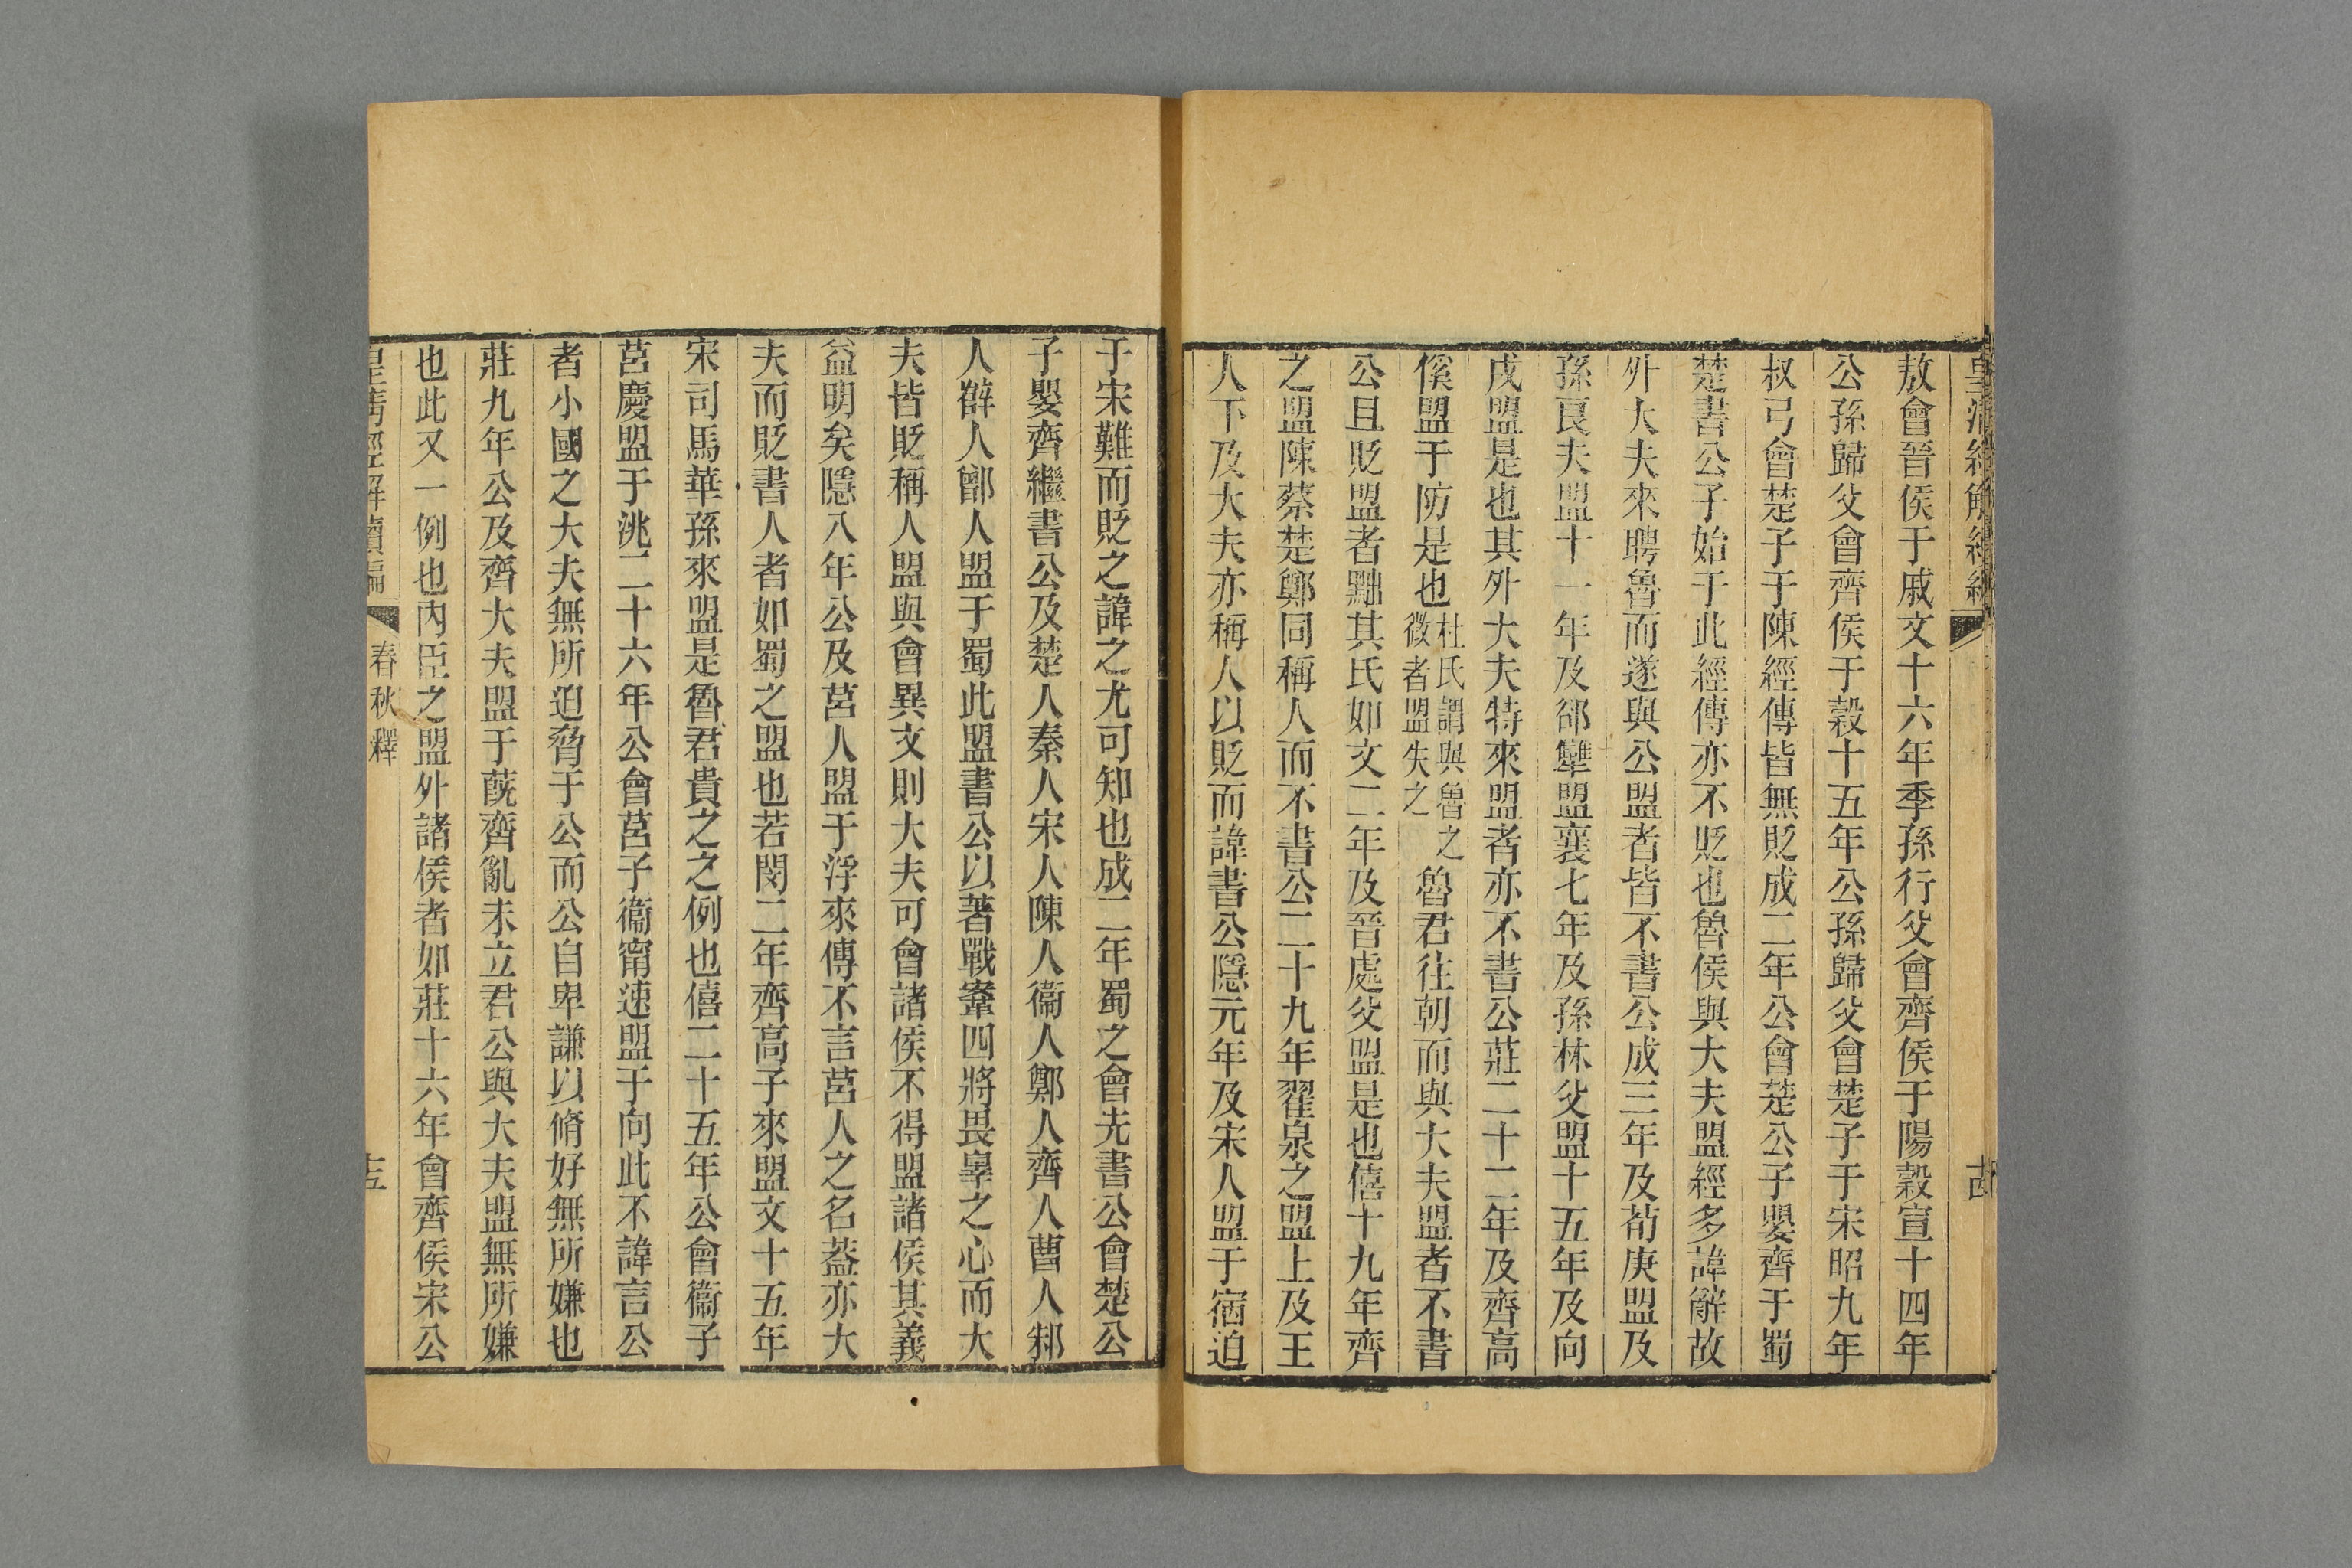 敖會晉侯于戚文十六年季孫行父會齊侯于陽穀宣十四年
公孫歸父會齊侯于穀十五年公孫歸父會楚子于宋昭九年
叔弓會楚子于陳經傳皆無貶成二年公會楚公子嬰齊于蜀
楚書公子始于此經傳亦不貶也魯侯與大夫盟經多諱辭故
外大夫來聘魯而遂與公盟者皆不書公成三年及荀庚盟及
孫良夫盟十一年及郤犫盟襄七年及孫林父盟十五年及向
戌盟是也其外大夫特來盟者亦不書公莊二十二年及齊高
傒盟于防是也杜氏謂與魯之微者盟失之魯君往朝而與大夫盟者不書
公且貶盟者黜其氏如文二年及晉處父盟是也僖十九年齊
之盟陳蔡楚鄭同稱人而不書公二十九年翟泉之盟上及王
人下及大夫亦稱人以貶而諱書公隱元年及宋人盟于宿迫
于宋難而貶之諱之尤可知也成二年蜀之會先書公會楚公
子嬰齊繼書公及楚人秦人宋人陳人衞人鄭人齊人曹人邾
人薛人鄫人盟于蜀此盟書公以著戰鞌四將畏辠之心而大
夫皆貶稱人盟與會異文則大夫可會諸侯不得盟諸侯其義
益明矣隱八年公及莒人盟于浮來傳不言莒人之名蓋亦大
夫而貶書人者如蜀之盟也若閔二年齊高子來盟文十五年
宋司馬華孫來盟是魯君貴之之例也僖二十五年公會衞子
莒慶盟于洮二十六年公會莒子衞甯速盟于向此不諱言公
者小國之大夫無所迫脅于公而公自卑謙以脩好無所嫌也
莊九年公及齊大夫盟于蔇齊亂未立君公與大夫盟無所嫌
也此又一例也內臣之盟外諸侯者如莊十六年會齊侯宋公
皇清經解續編 春秋釋 十五